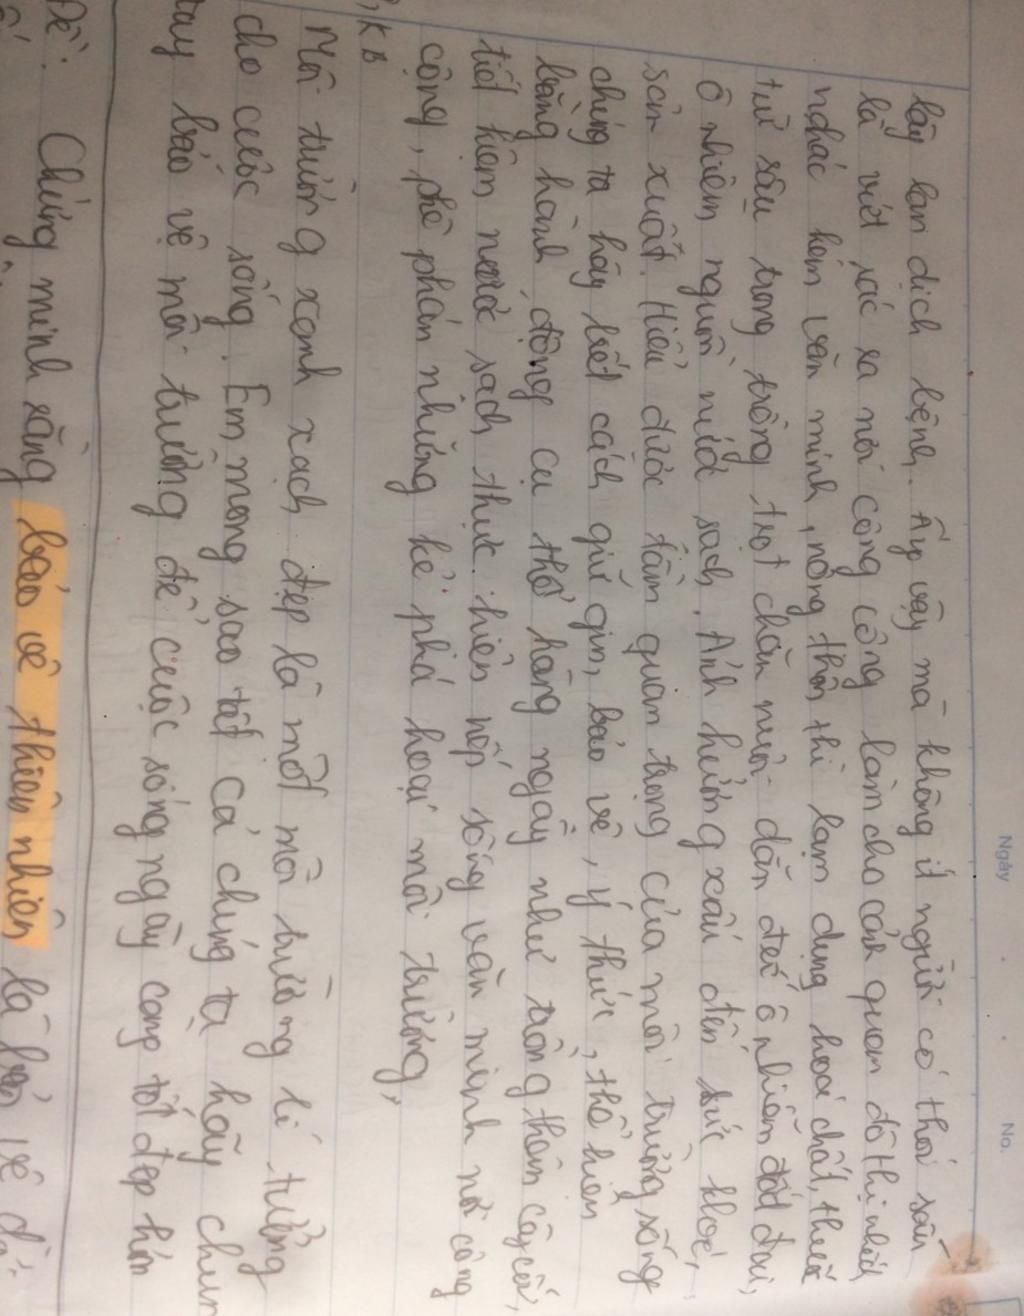 Ngày
No.
lây lan dịch bệnh. Ấy vậy mà không ít người có thói xấu
là vứt rác ra nơi công cộng làm cho cảnh quan đô thị nhếch
nhác kém văn minh, nông thôn thì lạm dụng hoá chất, thuốc
trừ sâu trong trồng trọt chăn nuôi dẫn đến ô nhiễm đất đai,
ô nhiễm nguồn nước sạch. Ảnh hưởng xấu đến sức khoẻ,
sản xuất. Hiểu được tầm quan trọng của môi trường sống
chúng ta hãy biết cách giữ gìn, bảo vệ, ý thức, thể hiện
bằng hành động cụ thể hàng ngày như trồng thêm cây cối,
tiết kiệm nước sạch thực hiện nếp sống văn minh nơi công
cộng, phê phán những kẻ phá hoại môi trường,
KB
Môi trường xanh xạch đẹp là một môi trường lí tưởng
cho cuộc sống. Em mong sao tất cả chúng ta hãy chun
tay bảo vệ môi trường để cuộc sống ngày càng tốt đẹp hơn
Đề: Chứng minh rằng bảo vệ thiên nhiên là bảo vệ